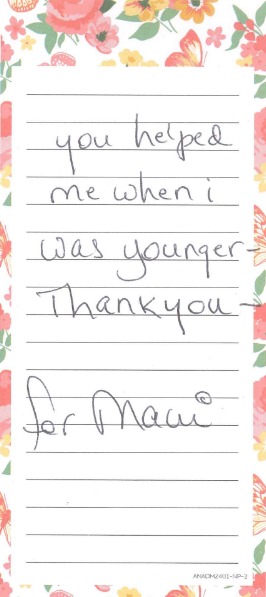 you helped
me when i
was younger-
Thankyou-
for Maui
ANADM2401-NP-2